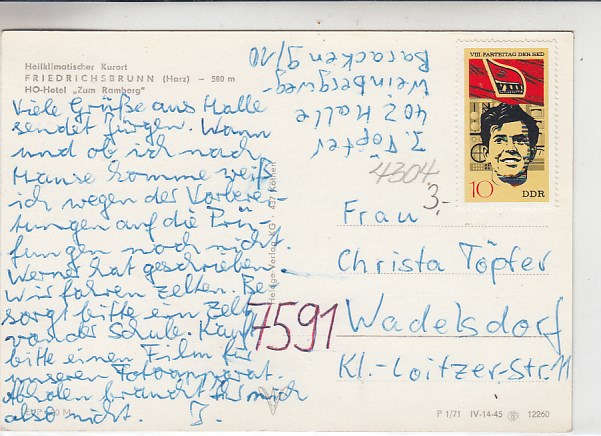 Heilklimatischer Kurort
FRIEDRICHSBRUNN (Harz) — 580 m
HO-Hotel „Zum Ramberg“
Viele Grüße aus Halle
sendet Jürgen. Wann
und ob ich nach
Hause komme weiß
ich wegen der Vorberei-
tungen auf die Prü-
fungen noch nicht.
Werner hat geschrieben.
Wir fahren zelten. Be-
sorgt bitte ein Zelt
von der Schule. Kauft
bitte einen Film für
unseren Fotoapparat.
Abholen braucht ihr mich
also nicht. J.
J. Töpfer
402 Halle
Weinbergweg-
Baracken 9/10
VIII. PARTEITAG DER SED
10
DDR
4304
3,-
Frau
Christa Töpfer
7591 Wadelsdorf
Kl.-Loitzer-Str. 11
Verlag KG · 437 Köthen
P 1/71 IV-14-45 12260